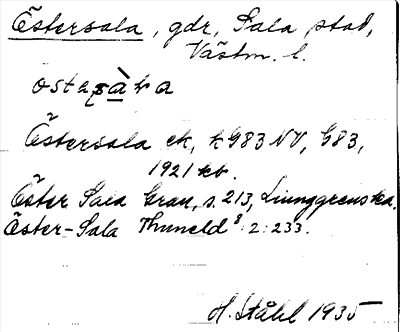 Östersala, gdr, Sala stad,
Västm. l.
Östersala ek, k G83 NV, G83,
1921 kb.
Öster Sala Grau, s. 213, Ljunggrenska.
Öster-Sala Thuneld 8: 2: 233.
H. Ståhl 1935